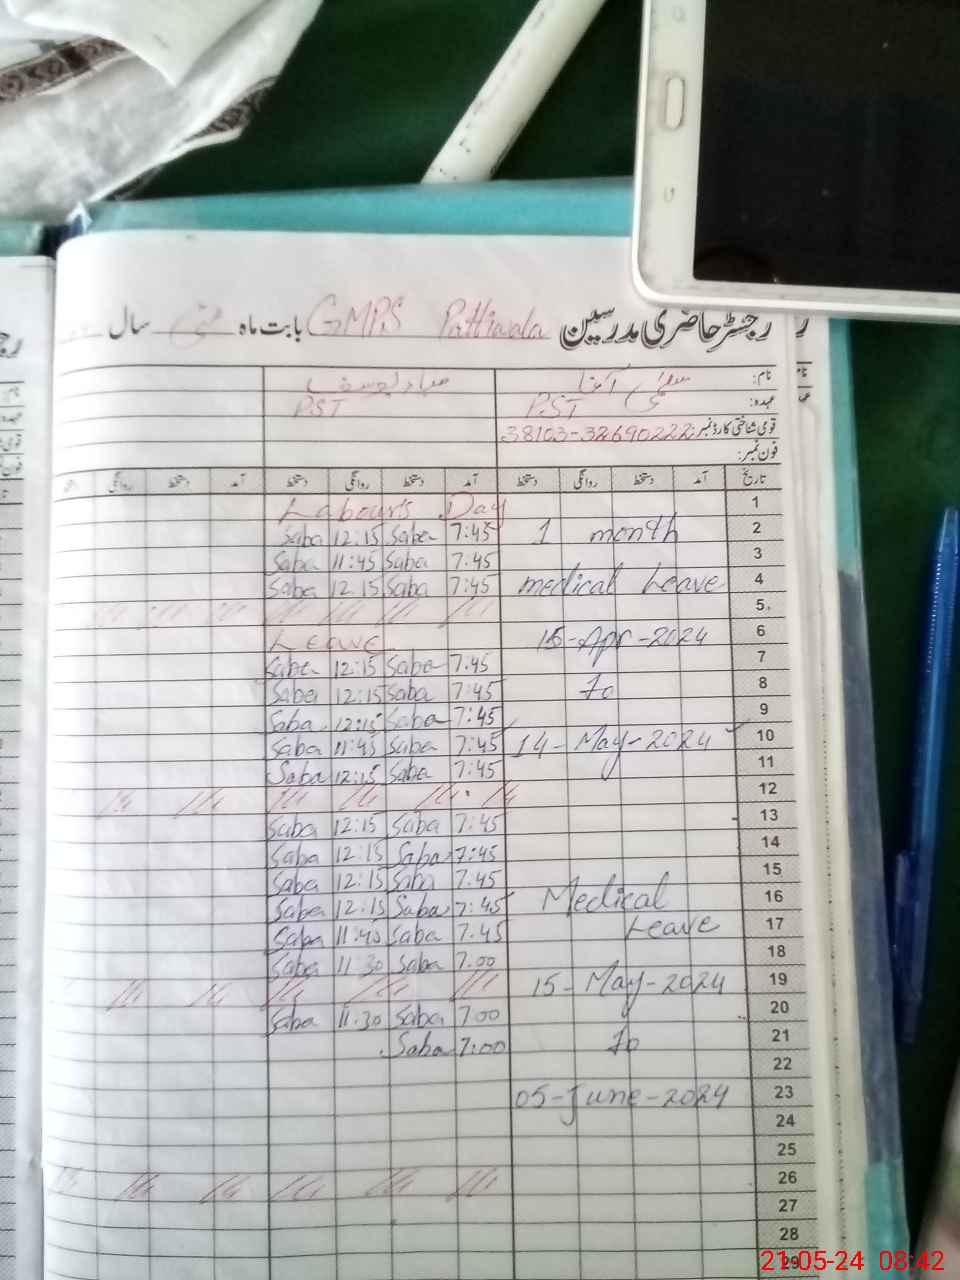 رجسٹر حاضری مدرسین GMPS Pattiwala بابت ماہ مئی سال
نام:
عہدہ: PST PST
قومی شناختی کارڈ نمبر: 38103-32690222
فون نمبر:
تاریخ آمد دستخط روانگی دستخط آمد دستخط روانگی دستخط آمد دستخط روانگی
1 Labour's Day
2 1 month 7:45 Saba 12:15 Saba
3 7.45 Saba 11:45 Saba
4 medical Leave 7:45 Saba 12.15 Saba
5.
6 15-Apr-2024 LEAVE
7 7.45 Saba 12:15 Saba
8 To 7:45 Saba 12:15 Saba
9 7:45 Saba 12:15 Saba
10 14-May-2024 7:45 Saba 11:45 Saba
11 7:45 Saba 12:15 Saba
12
13 7:45 Saba 12:15 Saba
14 7:45 Saba 12:15 Saba
15 7.45 Saba 12:15 Saba
16 Medical 7:45 Saba 12:15 Saba
17 Leave 7.45 Saba 11:40 Saba
18 7.00 Saba 11:30 Saba
19 15-May-2024
20 7.00 Saba 11.30 Saba
21 To 7:00 Saba
22
23 05-June-2024
24
25
26
27
28
29
21-05-24 08:42